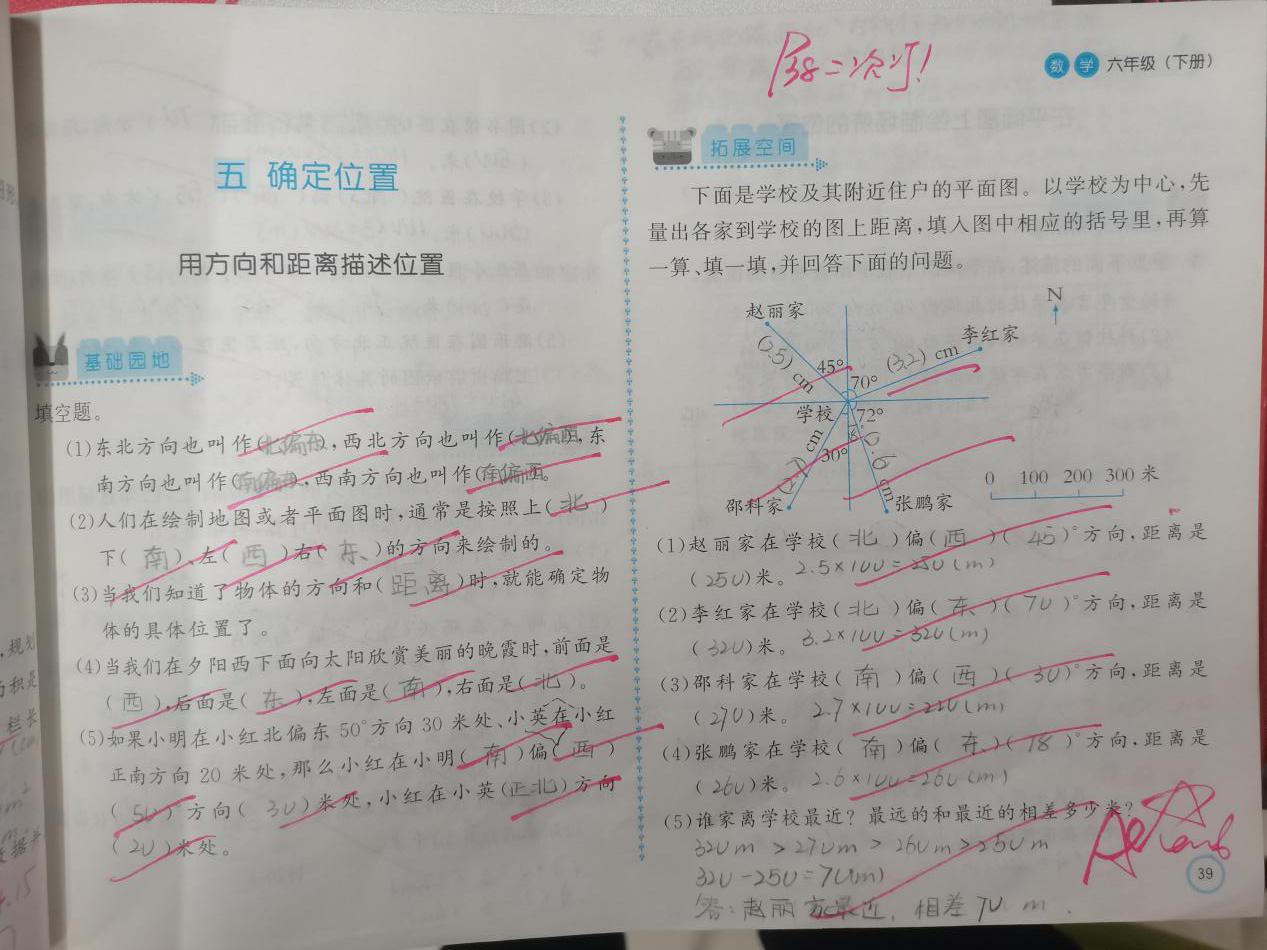 数学 六年级（下册）
五 确定位置
用方向和距离描述位置
基础园地
填空题。
(1)东北方向也叫作(北偏东),西北方向也叫作(北偏西),东
南方向也叫作(南偏东),西南方向也叫作(南偏西)。
(2)人们在绘制地图或者平面图时,通常是按照上(北)
下(南)、左(西)右(东)的方向来绘制的。
(3)当我们知道了物体的方向和(距离)时,就能确定物
体的具体位置了。
(4)当我们在夕阳西下面向太阳欣赏美丽的晚霞时,前面是
(西),后面是(东),左面是(南),右面是(北)。
(5)如果小明在小红北偏东50°方向30米处、小英在小红
正南方向20米处,那么小红在小明(南)偏(西)
(50)°方向(30)米处,小红在小英(正北)方向
(20)米处。
拓展空间
下面是学校及其附近住户的平面图。以学校为中心,先
量出各家到学校的图上距离,填入图中相应的括号里,再算
一算、填一填,并回答下面的问题。
N
赵丽家
李红家
(2.5) cm
45°
(3.2) cm
70°
学校
72°
30°
(2.7) cm
(2.6) cm
邵科家
张鹏家
0 100 200 300 米
(1)赵丽家在学校(北)偏(西)(45)°方向,距离是
(250)米。2.5×100=250(m)
(2)李红家在学校(北)偏(东)(70)°方向,距离是
(320)米。3.2×100=320(m)
(3)邵科家在学校(南)偏(西)(30)°方向,距离是
(270)米。2.7×100=270(m)
(4)张鹏家在学校(南)偏(东)(18)°方向,距离是
(260)米。2.6×100=260(m)
(5)谁家离学校最近？最远的和最近的相差多少米?
320m >270m > 260m >250m
320-250=70(m)
答:赵丽家最近,相差70m.
39